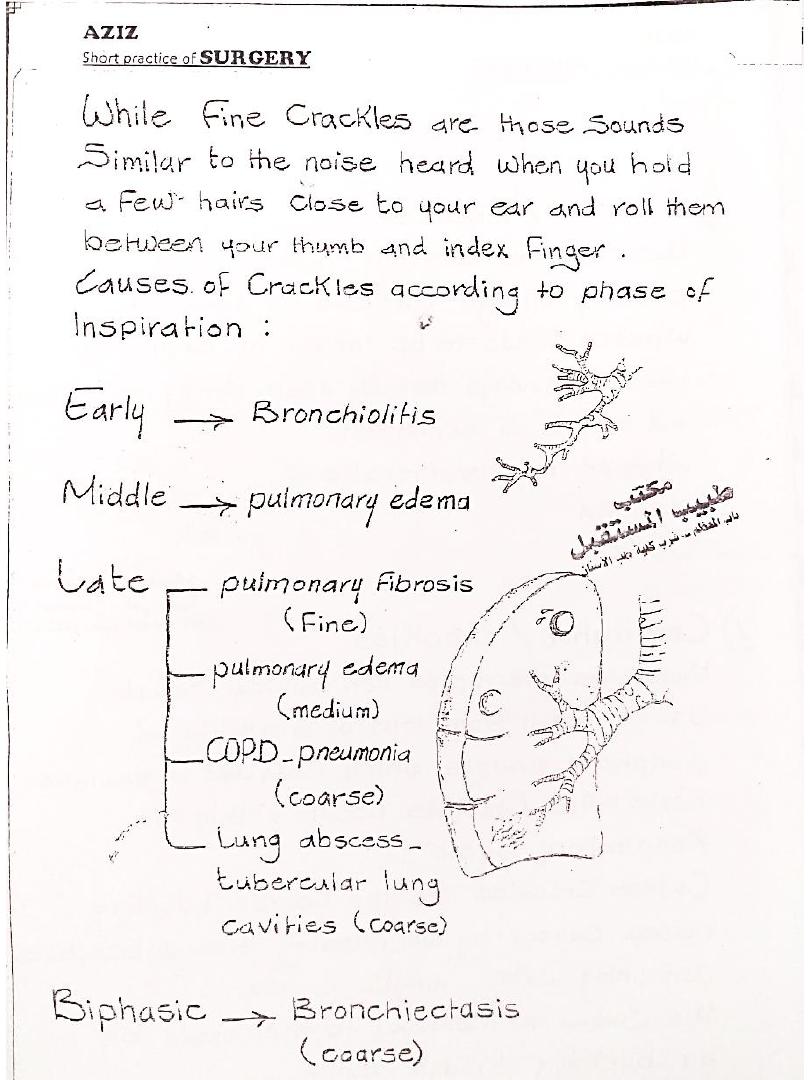 AZIZ
Short practice of SURGERY
While Fine Crackles are those Sounds
Similar to the noise heard when you hold
a Few hairs Close to your ear and roll them
between your thumb and index Finger .
Causes of Crackles according to phase of
Inspiration :
Early → Bronchiolitis
Middle → pulmonary edema
Late pulmonary Fibrosis
(Fine)
pulmonary edema
(medium)
COPD_pneumonia
(coarse)
Lung abscess_
tubercular lung
cavities (coarse)
Biphasic → Bronchiectasis
(coarse)
مكتب
طبيب المستقبل